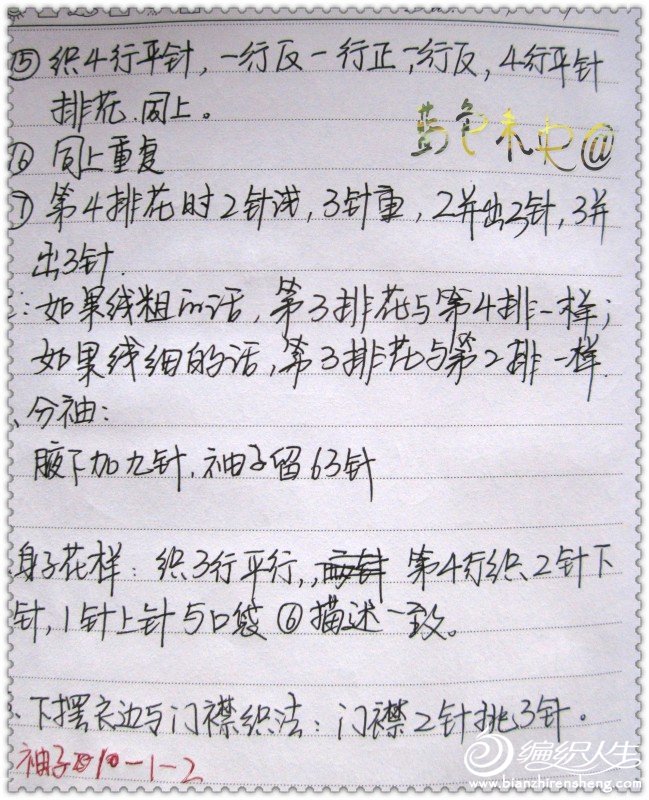 ⑤ 织4行平针，一行反一行正，一行反，4行平针
排花.同上。
蓝色未央@
⑥ 同上重复
第4排花时2针浅，3针重，2并出2针，3并
出3针.
：如果线粗的话，第3排花与第4排一样；
如果线细的话，第3排花与第2排一样.
、分袖：
腋下加九针.袖子留63针
身子花样：织3行平行，第4行织2针下
针，1针上针与口袋⑥描述一致。
、下摆衣边与门襟织法：门襟2针挑3针。
袖子 10-1-2
编织人生
www.bianzhirensheng.com